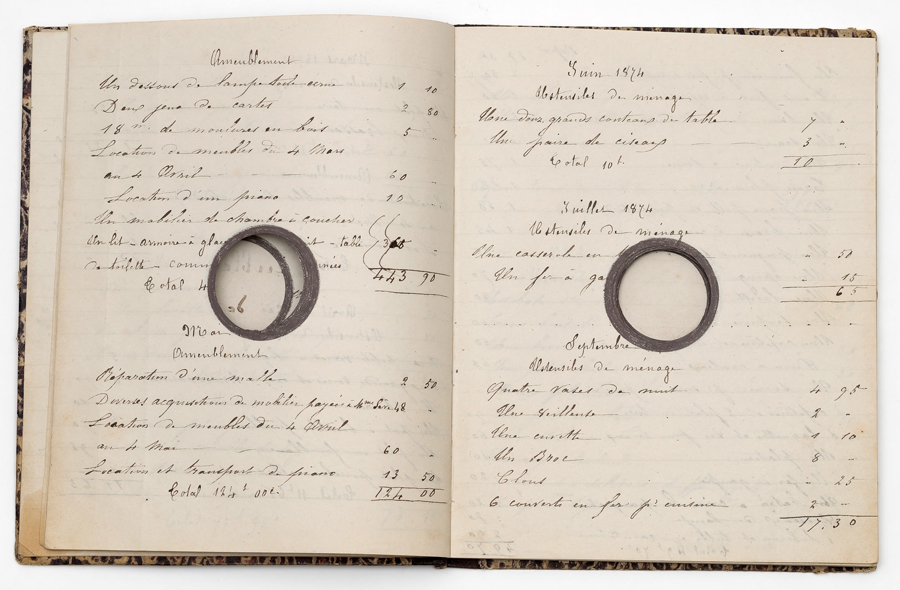 Ameublement
Un dessous de lampe toile cirée 1 10
Deux jeux de cartes 2 80
18 m. de moulures en bois 5 "
Location de meubles du 4 Mars
au 4 Avril 60 "
Location d'un piano
Un mobilier de chambre à coucher
Un lit - armoire à glace - table
de toilette - comm
443 90
Total 4
Mai
Ameublement
Réparation d'une malle 2 50
Diverses acquisitions de mobilier payées à Mme 48 "
Location de meubles du 4 Avril
au 4 Mai 60 "
Location et transport de piano 13 50
Total 124 f 00 c. 124 00
Juin 1874
Ustensiles de ménage
Une douz. grands couteaux de table 7 "
Une paire de ciseaux 3 "
Total 10 f. 10
Juillet 1874
Ustensiles de ménage
Une casserole en " 50
Un fer à ga " 15
65
Septembre
Ustensiles de ménage
Quatre vases de nuit 4 95
Une veilleuse 2 "
Une cuvette 1 10
Un Broc 8 "
Clous " 25
6 couverts en fer pr cuisine 2 "
17,30